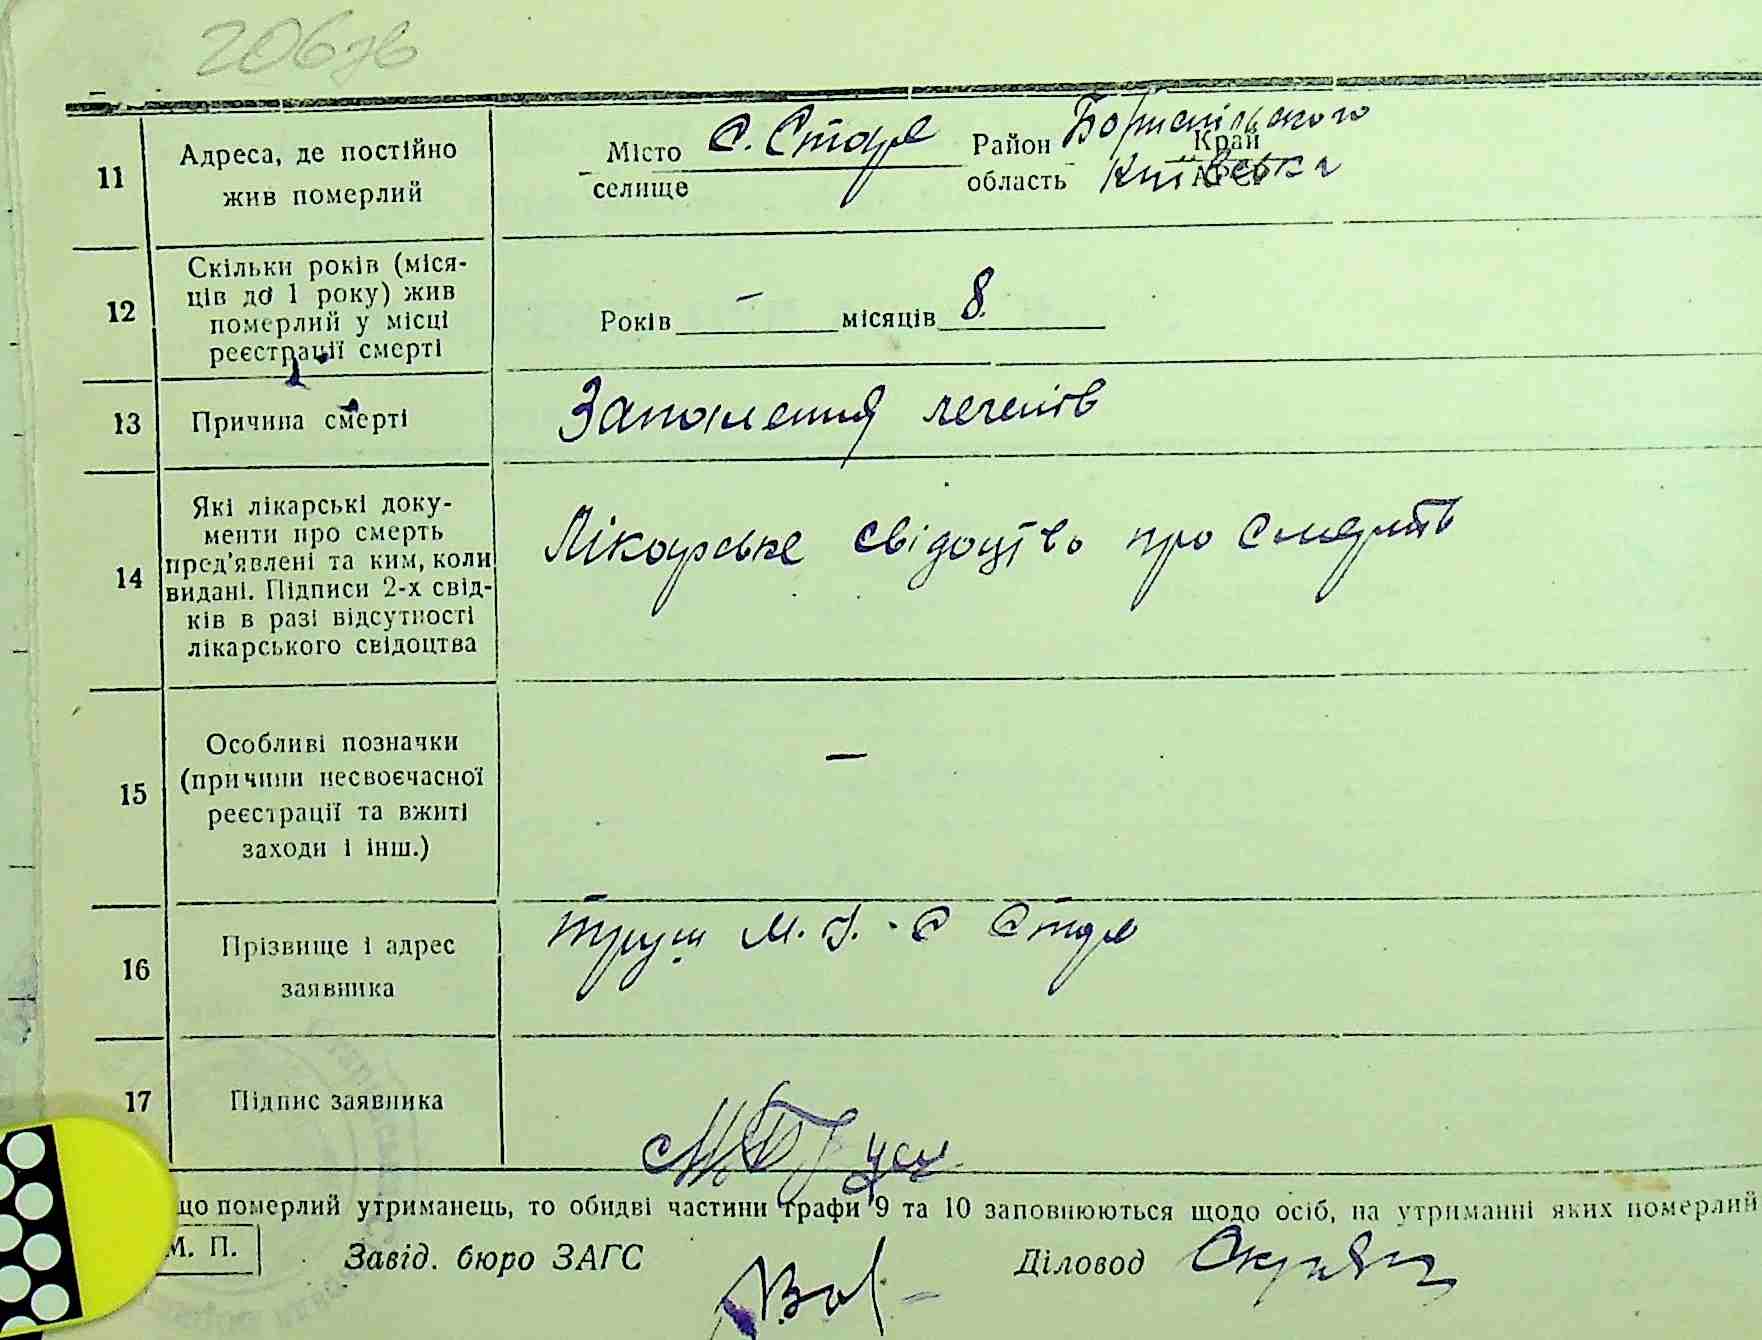 206зв
11
Адреса, де постійно
жив померлий
Місто с. Старе Район Бориспільського
Край
селище область Київська
12
Скільки років (міся-
ців до 1 року) жив
померлий у місці
реєстрації смерті
Років – місяців 8
13
Причина смерті
Запалення легенів
14
Які лікарські доку-
менти про смерть
пред'явлені та ким, коли
видані. Підписи 2-х свід-
ків в разі відсутності
лікарського свідоцтва
Лікарське свідоцтво про смерть
15
Особливі позначки
(причини несвоєчасної
реєстрації та вжиті
заходи і інш.)
—
16
Прізвище і адрес
заявника
Труш М. - с Старе
17
Підпис заявника
що померлий утриманець, то обидві частини графи 9 та 10 заповнюються щодо осіб, на утриманні яких померлий
М. П.
Завід. бюро ЗАГС
Діловод